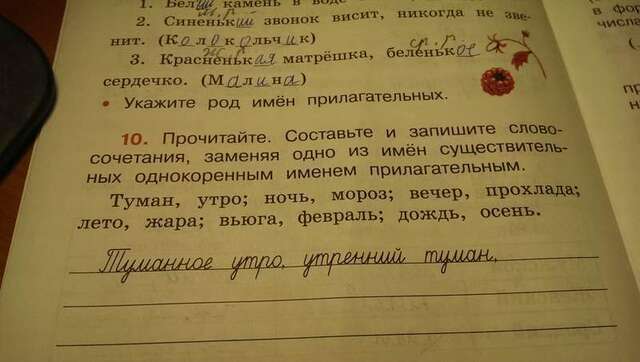 1. Белый камень в воде
ж. р.
2. Синенький звонок висит, никогда не зве-
нит. (Колокольчик)
ж. р. ср. р.
3. Красненькая матрёшка, беленькое
сердечко. (Малина)
• Укажите род имён прилагательных.
10. Прочитайте. Составьте и запишите слово-
сочетания, заменяя одно из имён существитель-
ных однокоренным именем прилагательным.
Туман, утро; ночь, мороз; вечер, прохлада;
лето, жара; вьюга, февраль; дождь, осень.
Туманное утро, утренний туман,
в фор
числа